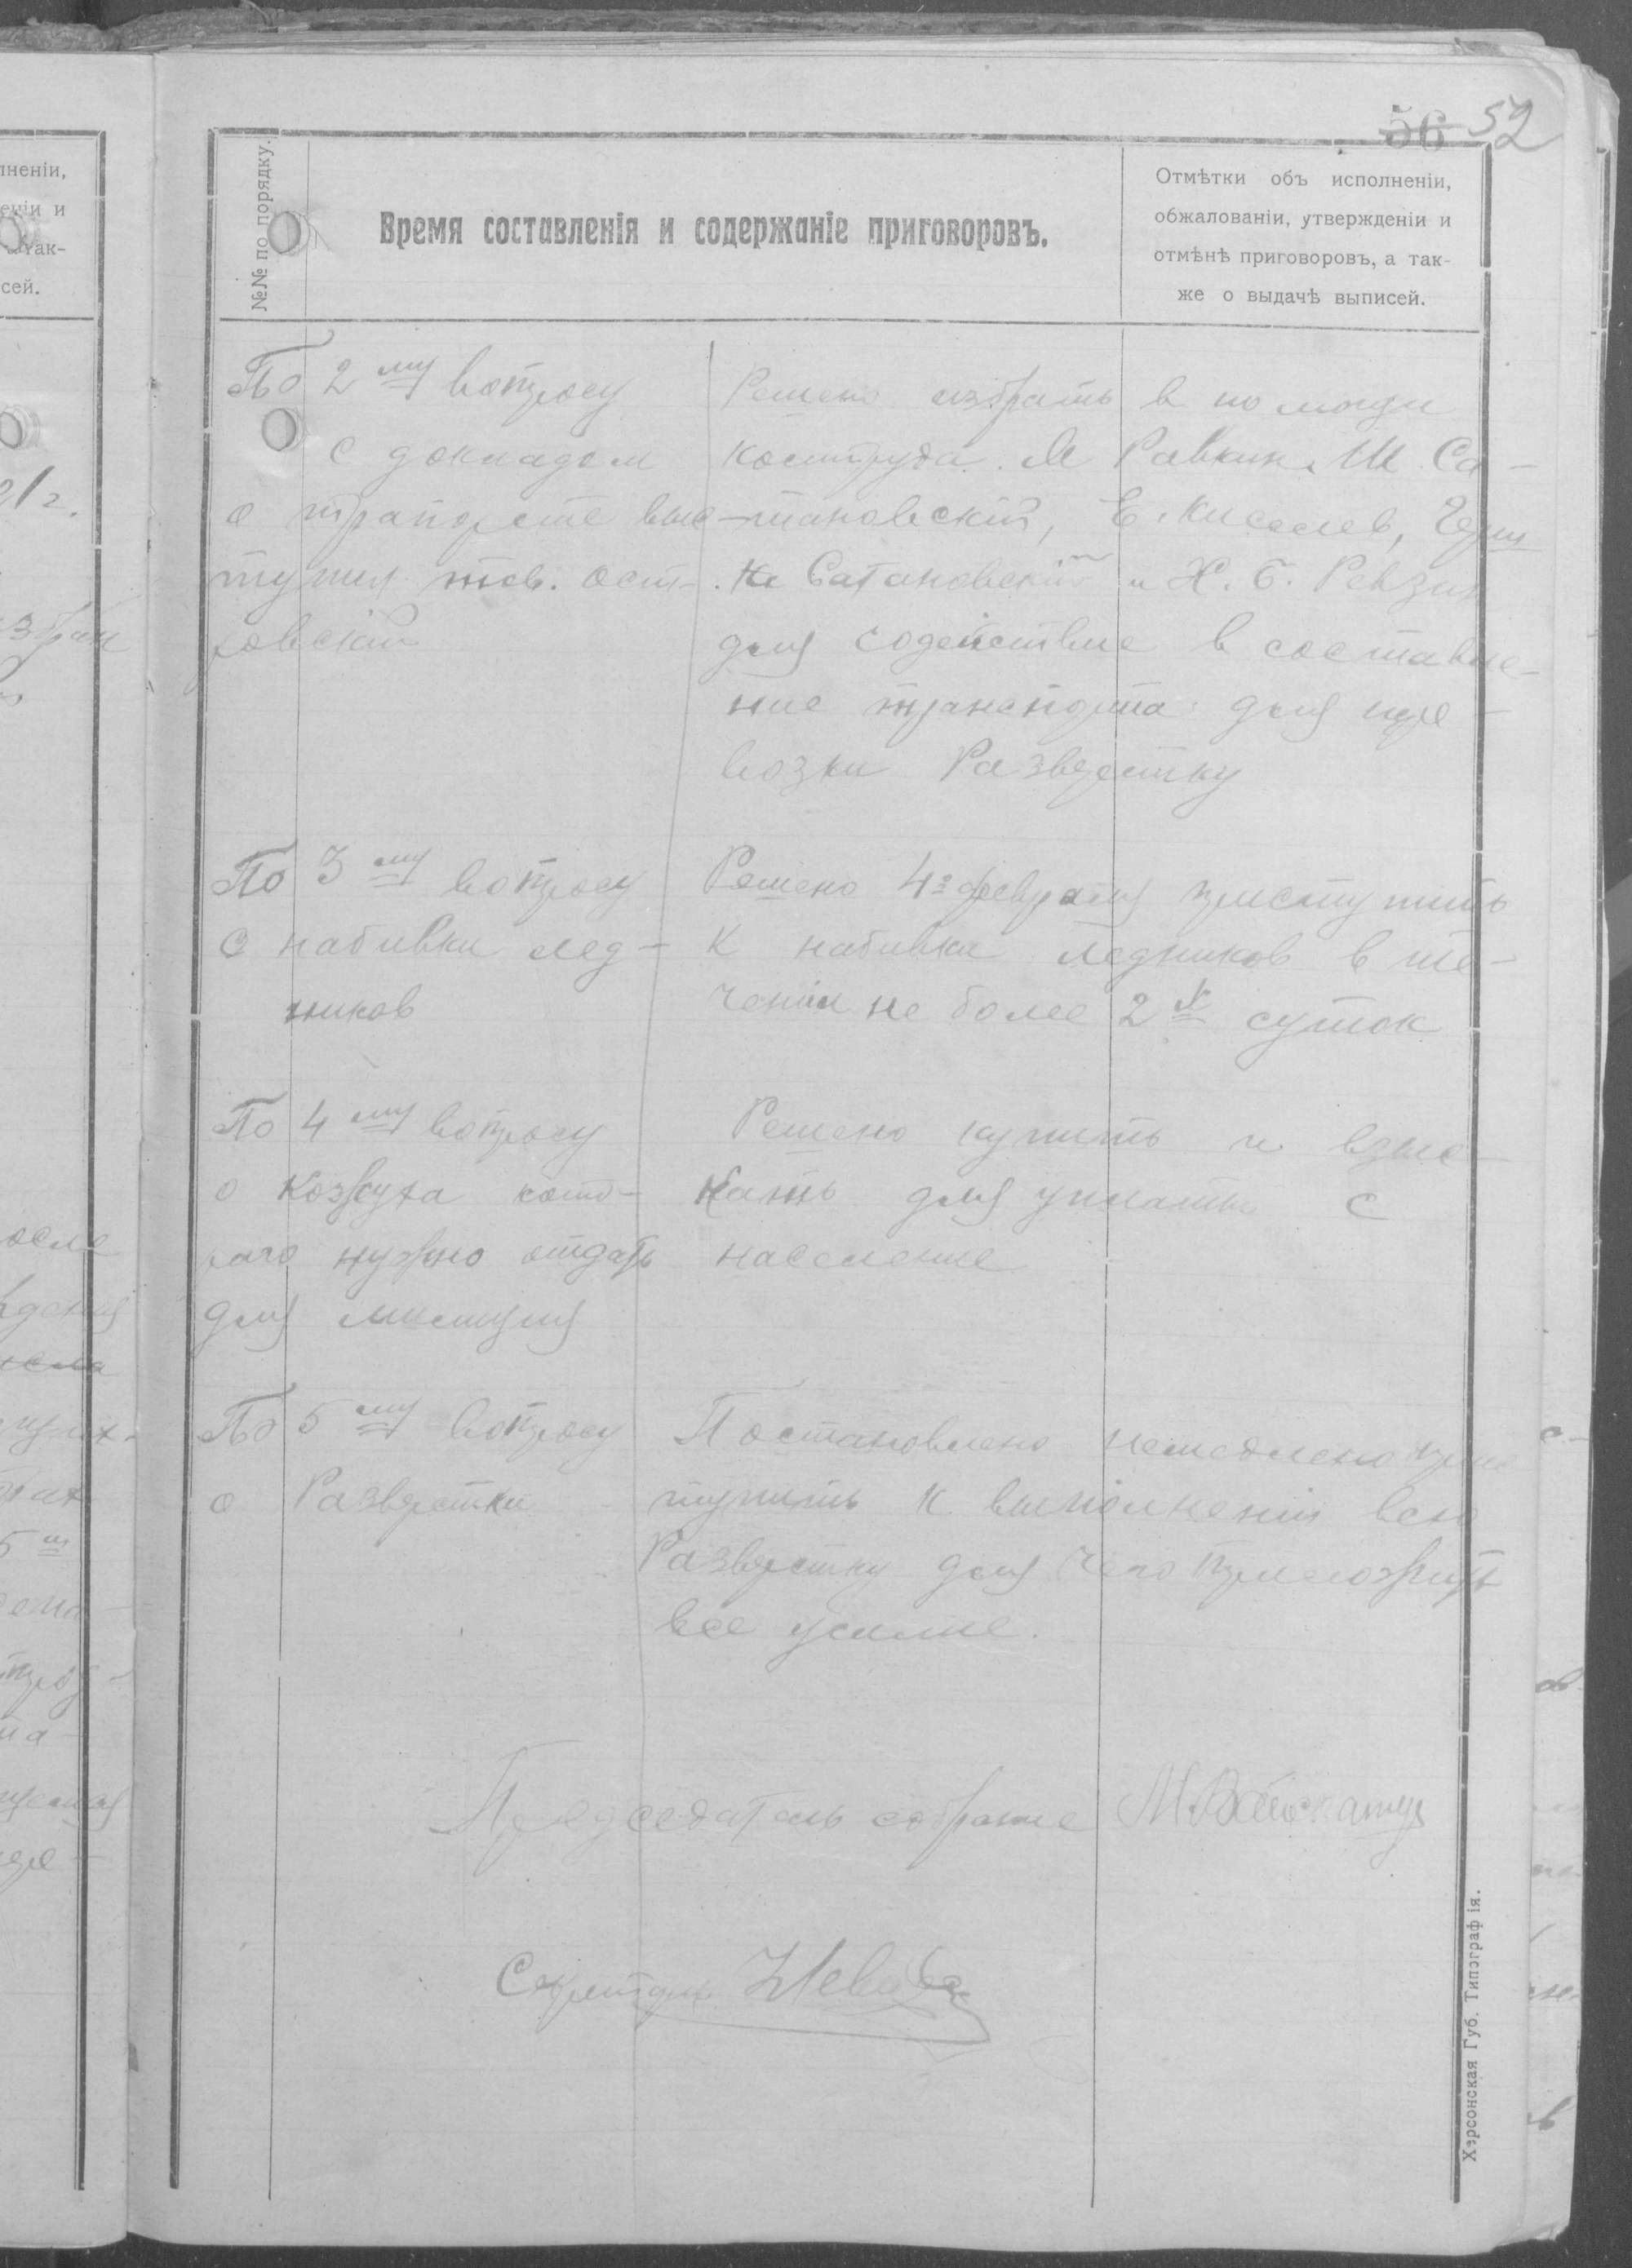 56 52
№№ по порядку.
Время составленія и содержаніе приговоровъ.
Отмѣтки объ исполненіи,
обжалованіи, утвержденіи и
отмѣнѣ приговоровъ, а так-
же о выдачѣ выписей.
По 2му вопросу
с докладом
о трапорсте выс
тупил тов. Ост-
ровский
Решено избрать в помощи
комтруда. М Равкин, Ш. Са-
тановскій, Е. Киселев,
Сатановский и Х. Б. Ревзин
для содействие в составле-
ние транспорта для пере-
возки Разверстку
По 3му вопросу
О набивки лед-
ников
Решено 4го февраля приступить
К набивки ледников в те-
чении не более 2х суток
По 4му вопросу
о Кожуха кото-
раго нужно отдать
для милиция
Решено купить и взыс-
кать для уплаты с
население
По 5му вопросу
о Разверстки
Постановлено немедлено прис
тупить к выполнении всю
Разверстку для чего приложить
все усилие.
Председатель собрание
Секретарь
Херсонская Губ. Типографія.
лненіи,
еніи и
а так-
сей.